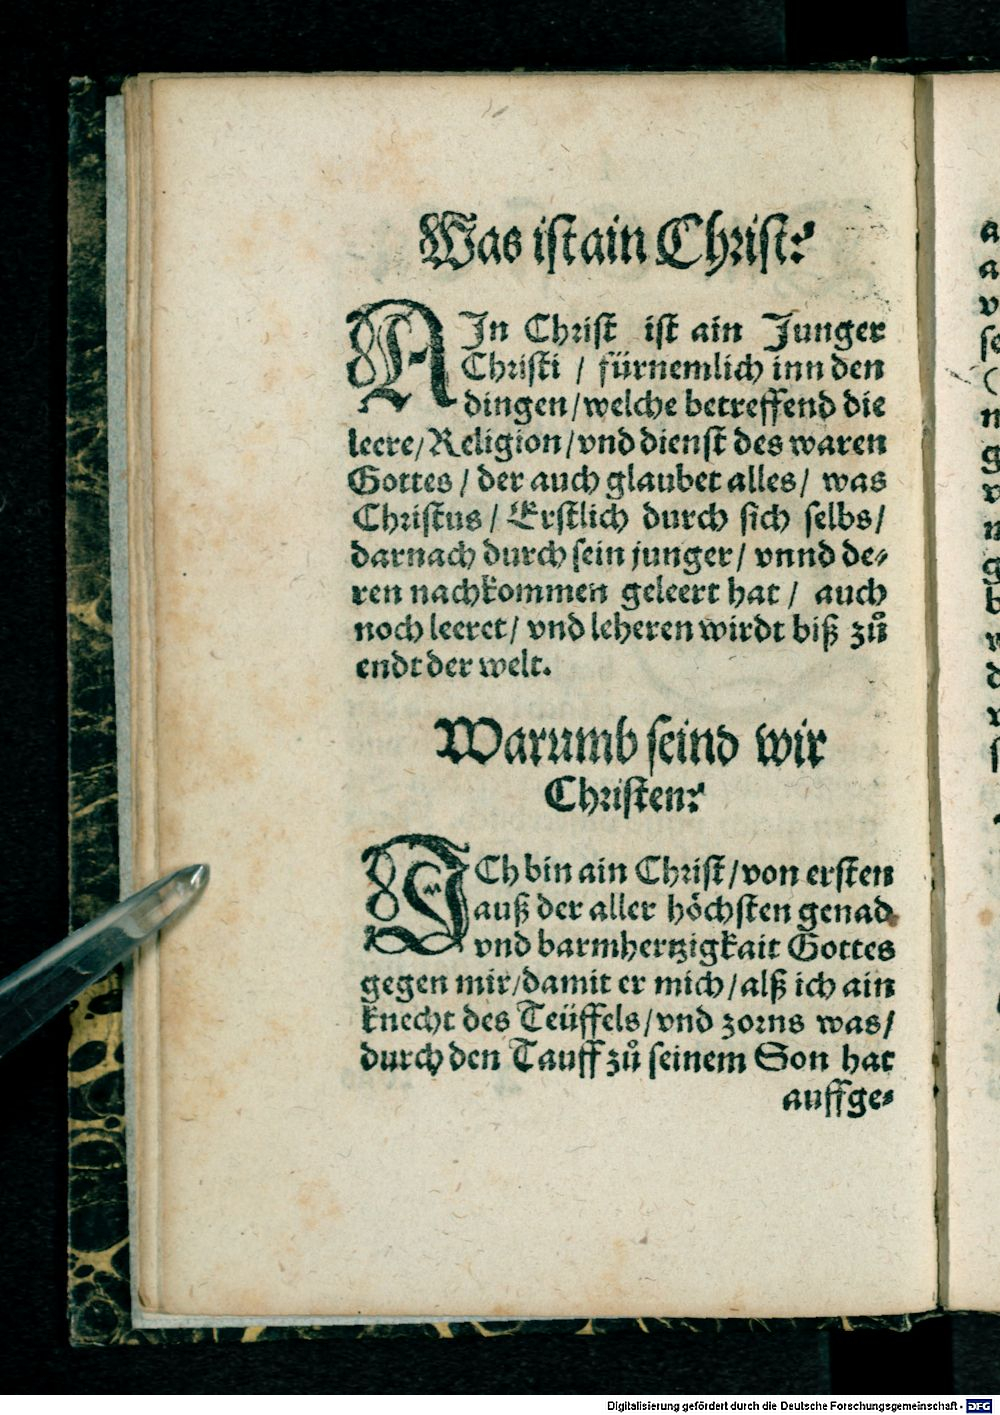 Was ist ain Christ?
AIn Christ ist ain Junger
Christi / fürnemlich inn den
dingen / welche betreffend die
leere / Religion / vnd dienst des waren
Gottes / der auch glaubet alles / was
Christus / Erstlich durch sich selbs /
darnach durch sein junger / vnnd de-
ren nachkommen geleert hat / auch
noch leeret / vnd leheren wirdt biß zů
endt der welt.
Warumb seind wir
Christen?
ICh bin ain Christ / von ersten
auß der aller höchsten genad
vnd barmhertzigkait Gottes
gegen mir / damit er mich / alß ich ain
knecht des Teüffels / vnd zorns was /
durch den Tauff zů seinem Son hat
auffge-
Digitalisierung gefördert durch die Deutsche Forschungsgemeinschaft - DFG